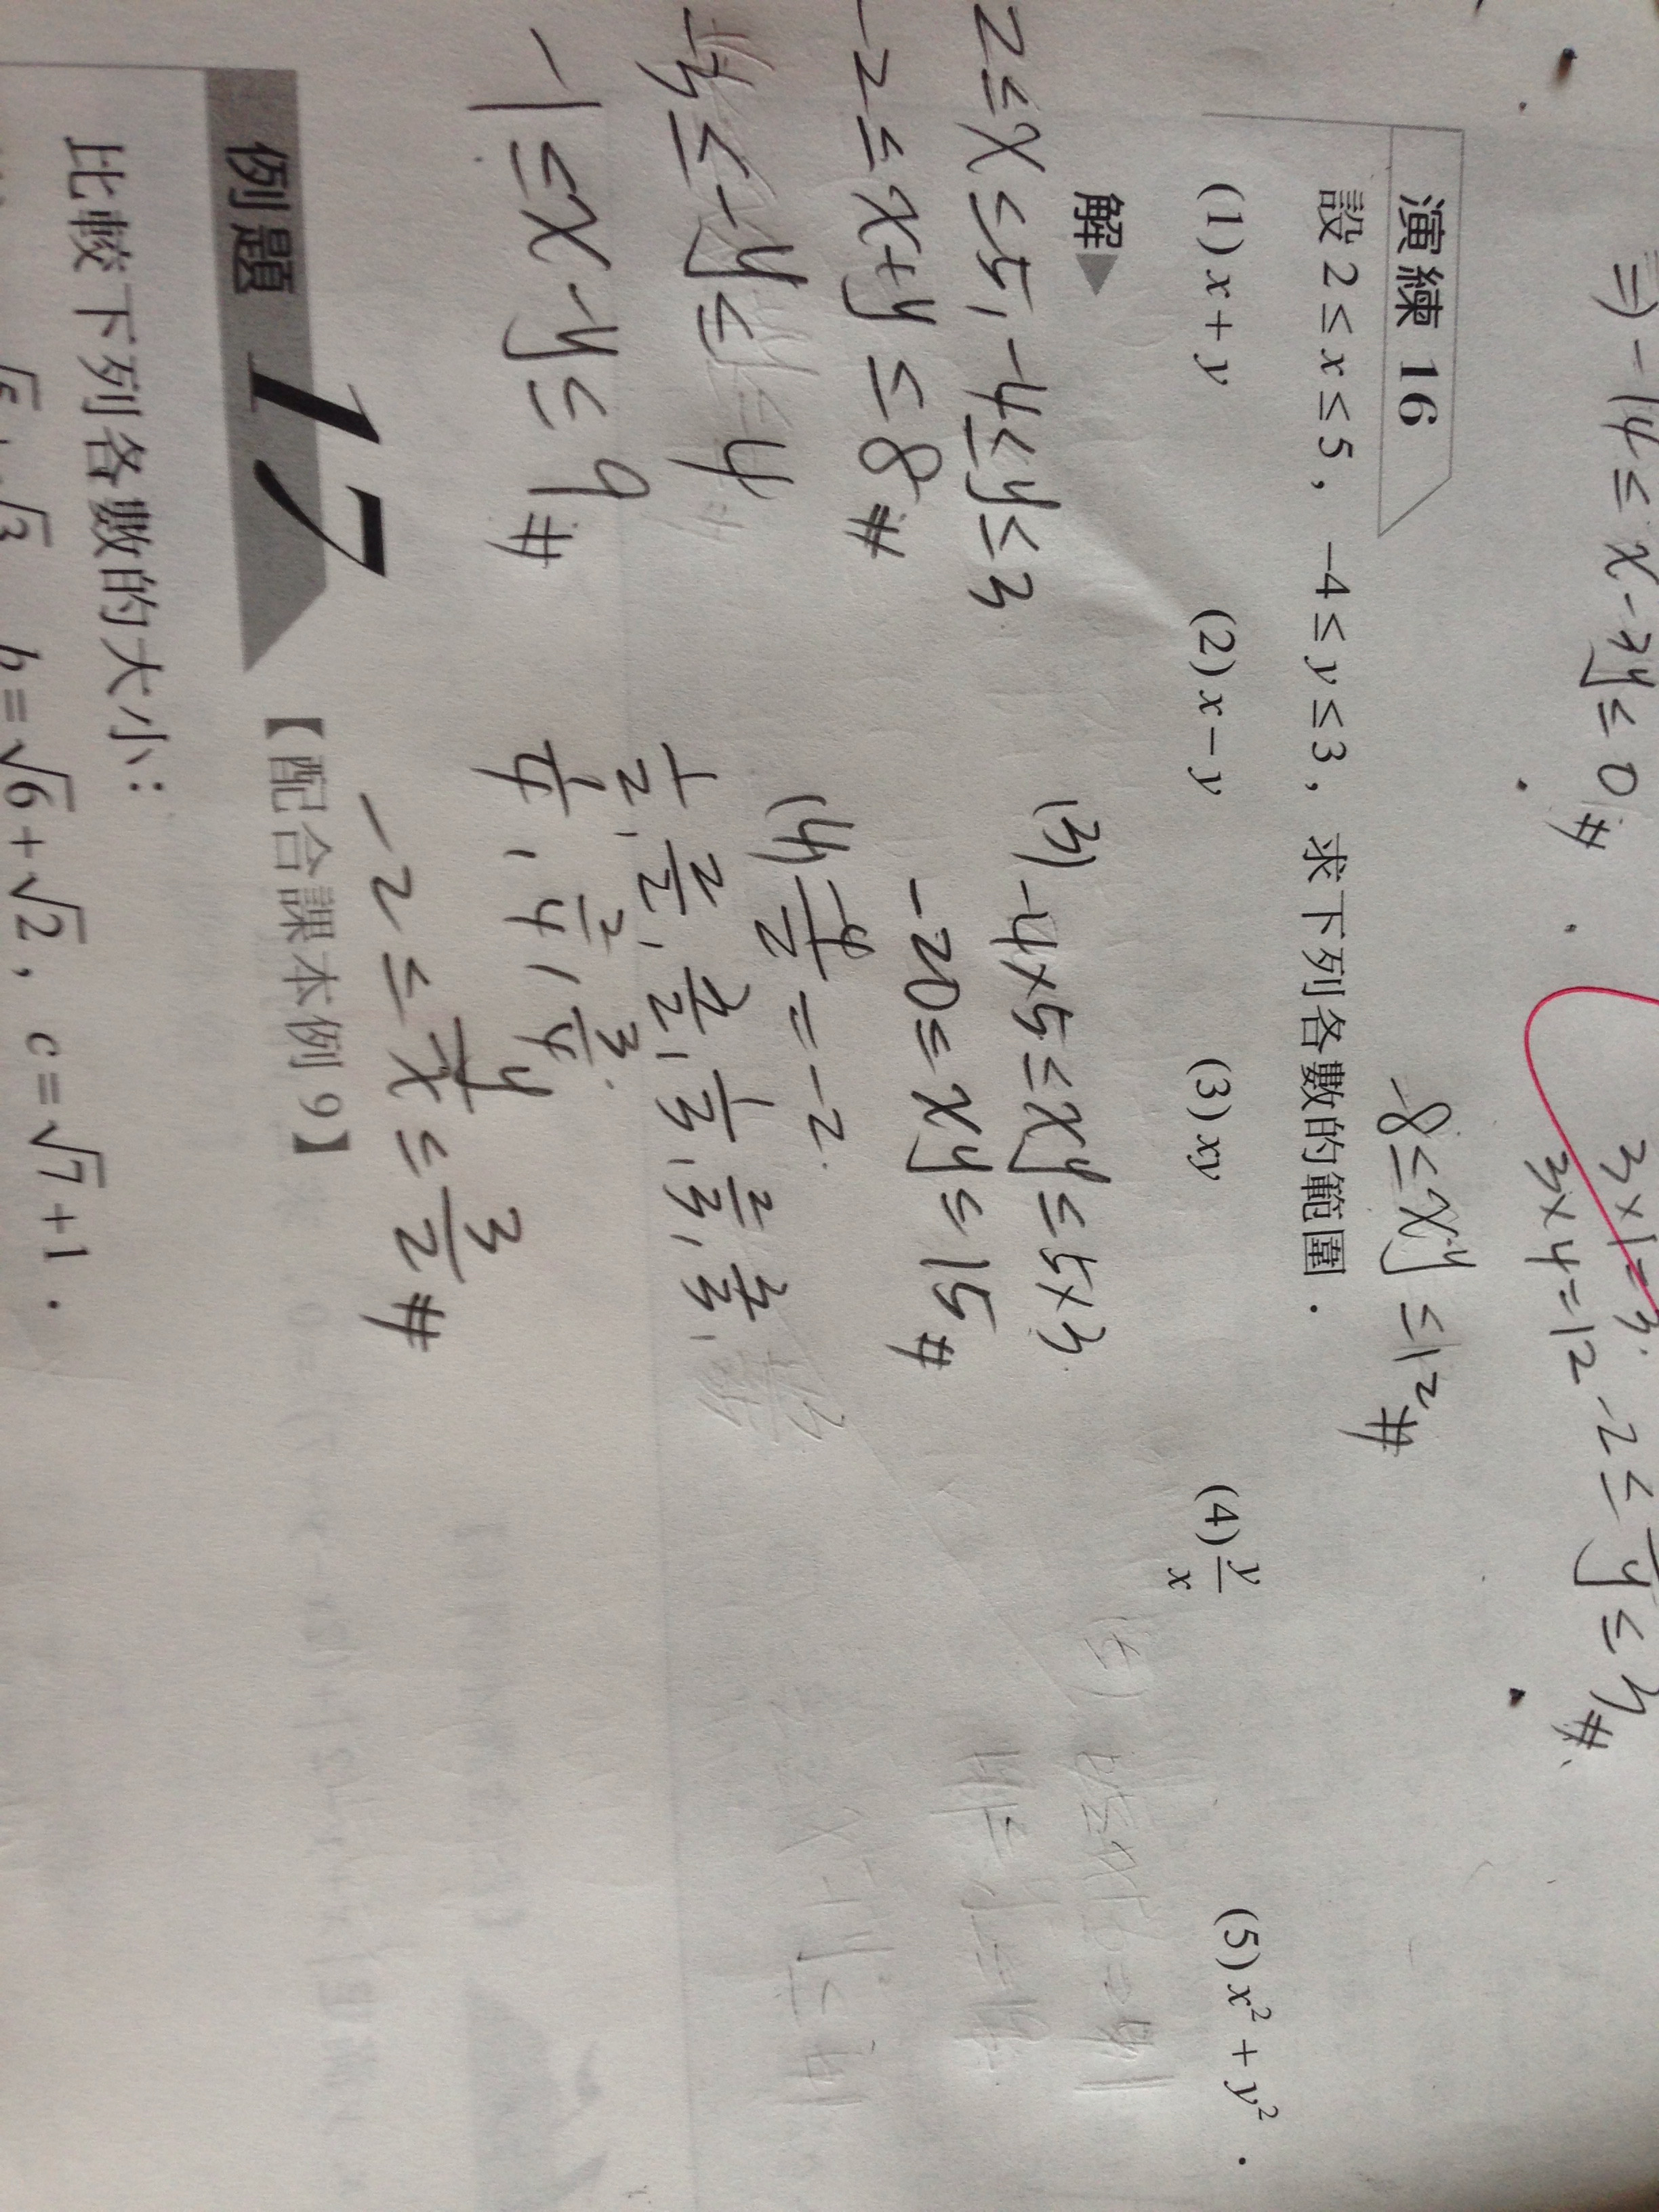 ⇒ -14 ≤ x - 2y ≤ 0 #
3×1=3.
3×4=12
-2 ≤ y ≤ 3 #
-8 ≤ xy ≤ 12 #
演練 16
設 2 ≤ x ≤ 5，-4 ≤ y ≤ 3，求下列各數的範圍．
(1) x + y (2) x - y (3) xy (4) y/x (5) x² + y²．
解▶
2 ≤ x ≤ 5, -4 ≤ y ≤ 3
-2 ≤ x+y ≤ 8 #
-3 ≤ -y ≤ 4
-1 ≤ x - y ≤ 9 #
(3) -4×5 ≤ xy ≤ 5×3
-20 ≤ xy ≤ 15 #
(4) -4/2 = -2.
1/2, 2/2, 3/2, 1/3, 2/3, 3/3,
1/4, 2/4, 3/4
-2 ≤ y/x ≤ 3/2 #
例題 17 【配合課本例 9】
比較下列各數的大小：
b = √6 + √2，c = √7 + 1．